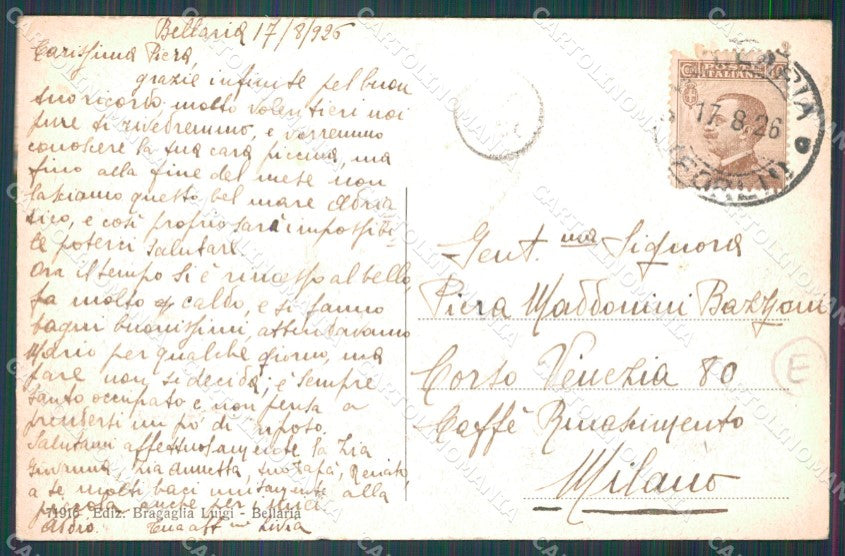 Bellaria 17/8/926
Carissima Piera,
grazie infinite pel buon
tuo ricordo, molto volentieri noi
pure ti rivedremmo, e verremmo
conoscere la tua cara piccina, ma
fino alla fine del mese non
lasciamo questo bel mare Adria
tico, e così proprio sarà impossibi
le poterci salutare.
Ora il tempo si è rimesso al bello,
fa molto caldo, e si fanno
bagni buonissimi, attendavamo
Mario per qualche giorno, ma
pare non si decida, è sempre
tanto occupato e non pensa a
prendersi un po' di riposo.
Salutami affettuosamente la Zia
Giovanna, Zia Annetta, tuo Papà, Renato
a te molti baci unitamente alla
piccola anche per Maria
Aldo. Tua aff.ma Livia
71916 - Ediz. Bragaglia Luigi - Bellaria
POSTE
ITALIANE
17.8.26
Gent.ma Signora
Piera Maddonini Bazzoni
Corso Venezia 80
Caffè Rinascimento
Milano
E
CARTOLINOMANIA